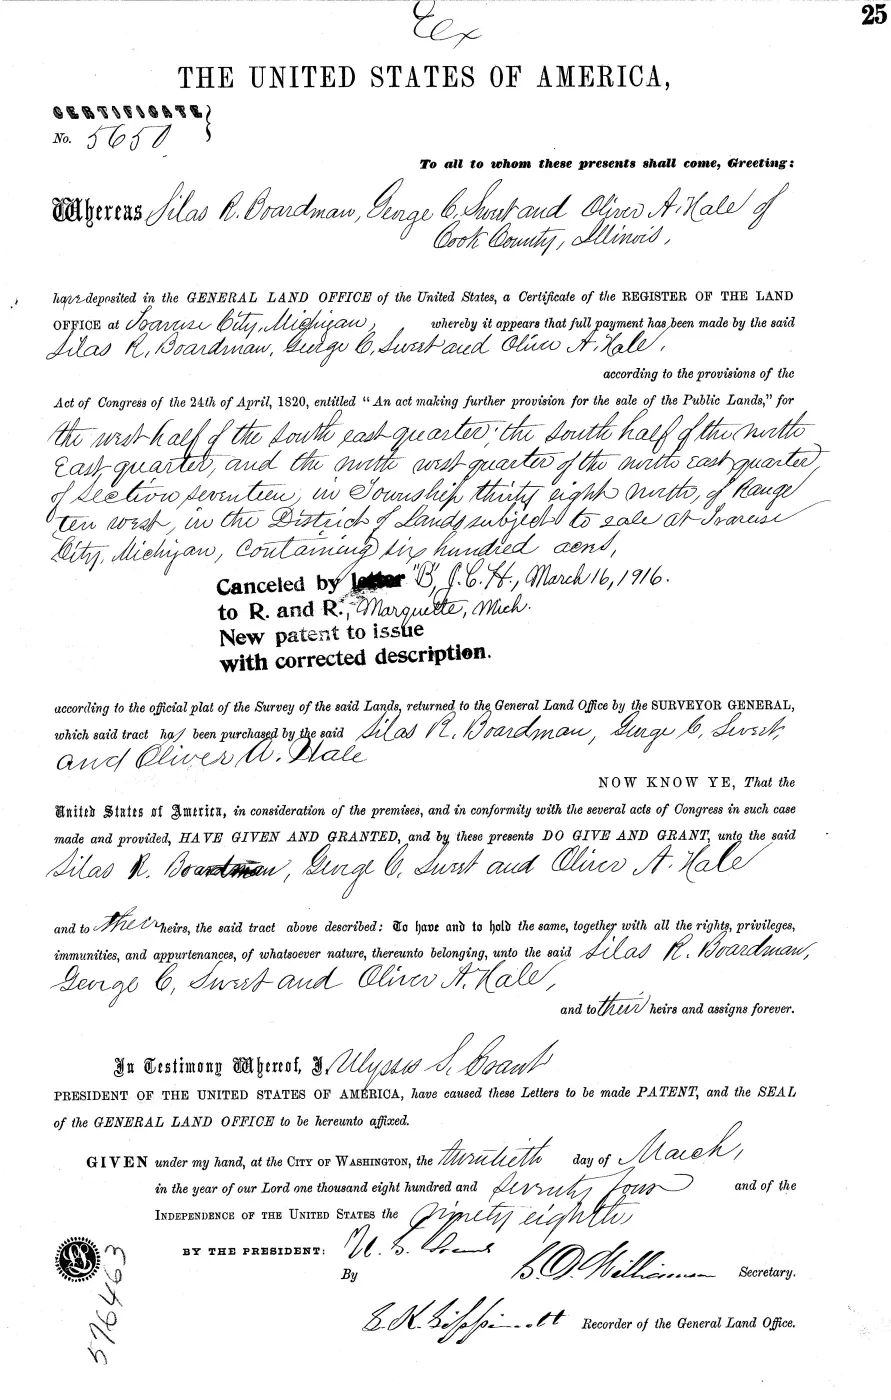 25
Ex
THE UNITED STATES OF AMERICA,
CERTIFICATE
No. 5650
To all to whom these presents shall come, Greeting:
Whereas Silas R. Boardman, George C. Sweet and Oliver A. Hale of
Cook County, Illinois,
have deposited in the GENERAL LAND OFFICE of the United States, a Certificate of the REGISTER OF THE LAND
OFFICE at Traverse City, Michigan, whereby it appears that full payment has been made by the said
Silas R. Boardman, George C. Sweet and Oliver A. Hale,
according to the provisions of the
Act of Congress of the 24th of April, 1820, entitled "An act making further provision for the sale of the Public Lands," for
the west half of the south east quarter, the south half of the north
East quarter, and the north west quarter of the north East quarter
of Section seventeen, in Township thirty eight north, of Range
ten west, in the District of Lands subject to sale at Traverse
City, Michigan, containing six hundred acres,
Canceled by letter "B", J.C.H., March 16, 1916.
to R. and R., Marquette, Mich.
New patent to issue
with corrected description.
according to the official plat of the Survey of the said Lands, returned to the General Land Office by the SURVEYOR GENERAL,
which said tract has been purchased by the said Silas R. Boardman, George C. Sweet,
and Oliver A. Hale
NOW KNOW YE, That the
United States of America, in consideration of the premises, and in conformity with the several acts of Congress in such case
made and provided, HAVE GIVEN AND GRANTED, and by these presents DO GIVE AND GRANT, unto the said
Silas R. Boardman, George C. Sweet and Oliver A. Hale
and to their heirs, the said tract above described: To have and to hold the same, together with all the rights, privileges,
immunities, and appurtenances, of whatsoever nature, thereunto belonging, unto the said Silas R. Boardman,
George C. Sweet and Oliver A. Hale,
and to their heirs and assigns forever.
In Testimony Whereof, I, Ulysses S. Grant
PRESIDENT OF THE UNITED STATES OF AMERICA, have caused these Letters to be made PATENT, and the SEAL
of the GENERAL LAND OFFICE to be hereunto affixed.
GIVEN under my hand, at the CITY OF WASHINGTON, the twentieth day of March,
in the year of our Lord one thousand eight hundred and seventy four and of the
INDEPENDENCE OF THE UNITED STATES the ninety eighth
BY THE PRESIDENT: U. S. Grant
By S. D. Williamson Secretary.
E. K. Lippincott Recorder of the General Land Office.
LS
576463